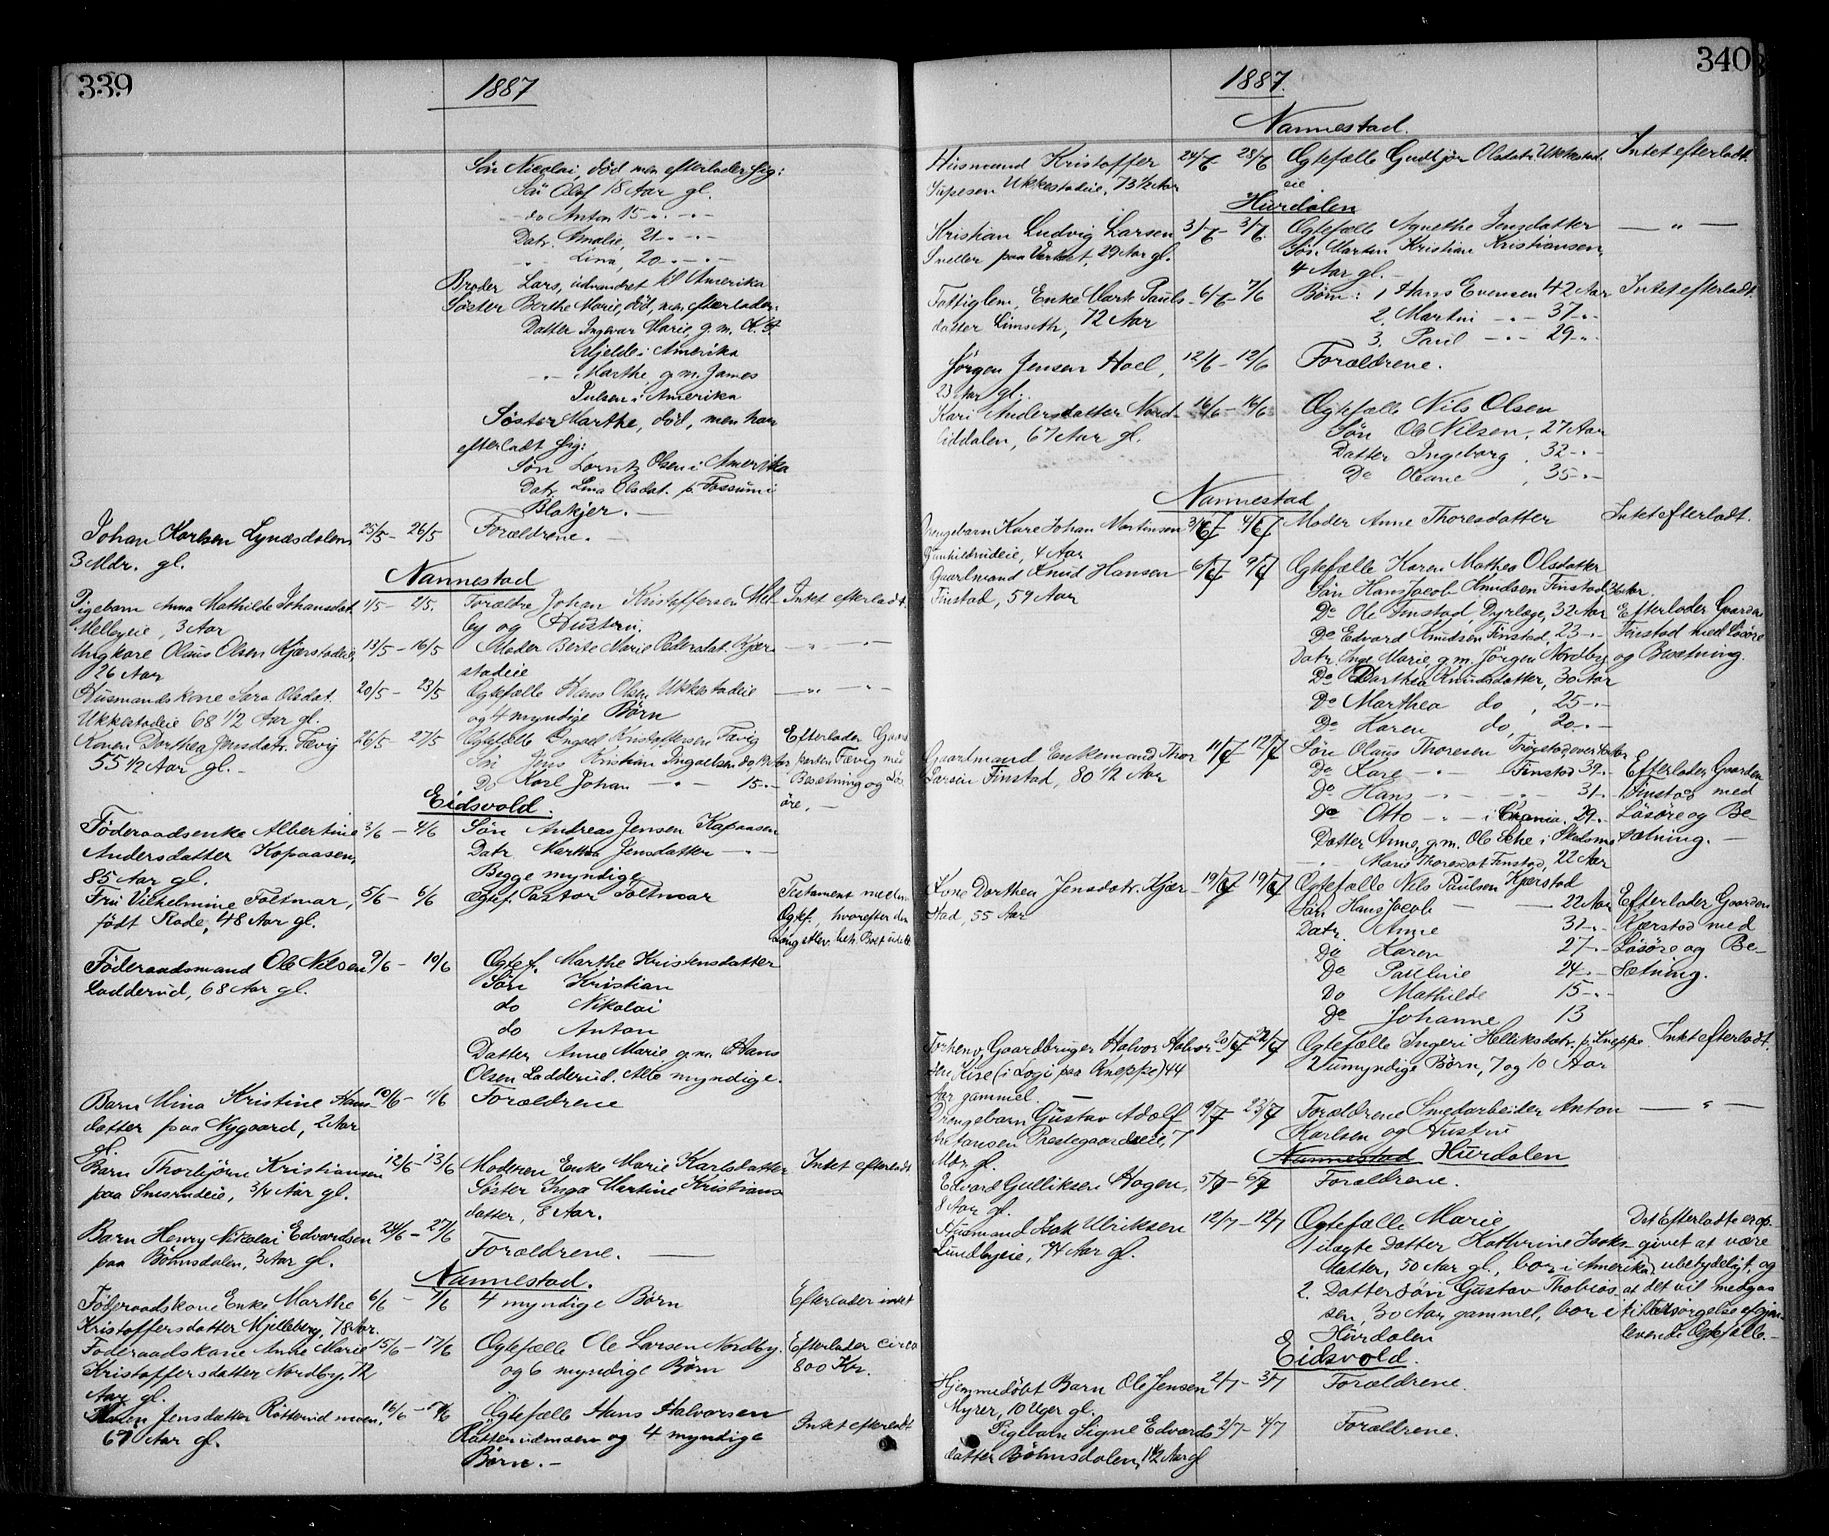 339
1887
Søn Nicolai, død men efterlader sig:
Søn Olaf 18 Aar gl.
do Anton 15 -"- -"-
Datr. Amalie, 21 -"- -"-
-"- Lina, 20 -"- -"-
Broder Lars, udvandret til Amerika
Søster Berthe Marie, død, men efterlader:
Datter Ingvar Marie, g.m.
Mjelde i Amerika
-"- Marthe g.m. James
Julsen i Amerika
Søster Marthe, død, men har
efterladt sig:
Søn Lorntz Olsen i Amerika
Datr. Lina Olsdat. p. Fossum i
Blakjer. —
Johan Karlsen Lynæsdalen 25/5 - 26/5 Forældrene. —
3 Mdr. gl.
Nannestad
Pigebarn Anna Mathilde Johansdat. 1/5 - 2/5. Forældre Johan Kristoffersen Mel- Intet efterladt.
Mellbyeie, 3 Aar by og Hustru.
Ungkare Olaus Olsen Kjærstadeie, 13/5 - 16/5 Moder Berte Marie Pedersdat. Kjær- -"- -"-
26 Aar stadeie
Husmandskone Sara Olsdat. 20/5 - 23/5 Ægtefælle Hans Olsen Ukkestadeie -"- -"-
Ukkestadeie 68 1/2 Aar gl. og 4 myndige Børn
Konen Dorthea Jensdatr. Fævig 26/5 - 27/5 Ægtefælle Ingvel Kristoffersen Fævig Efterlader Gaard-
55 1/2 Aar gl. - Søn Jens Kristian parten Fævig med
Do Karl Johan -"- 15 -"- Besætning og Løs-
øre, —
Eidsvold.
Føderaadsenke Albertine 3/6 - 4/6 Søn Andreas Jensen Kopaasen
Andersdatter Kopaasen, Datr. Marthea Jensdatter -"-
85 Aar gl. Begge myndige
Fru Vilhelmine Foltmar, 5/6 - 6/6 Ægtef. Pastor Foltmar Testament mellem
født Rode, 48 Aar gl. Ægtf., hvorefter den
Længstlev. beh. Boet udelt
Føderaadsmand Ole Nilsen 9/6 - 10/6 Ægtef. Marthe Kristensdatter
Ladderud, 68 Aar gl. Søn Kristian
do Nikolai
do Anton
Datter Anne Marie g.m. Hans
Olsen Ladderud. Alle myndige.
Barn Mina Kristine Hans- 10/6 - 11/6 Forældrene
datter paa Nygaard, 2 Aar
gl.
Barn Thorbjørn Kristiansen 12/6 - 13/6 Moderen Enke Marie Karlsdatter Intet efterladt
paa Smerudeie, 3/4 Aar gl. Søster Inga Martine Kristians
datter, 8 Aar.
Barn Henry Nikolai Edvardsen 24/6 - 27/6 Forældrene. —
paa Bøhnsdalen, 3 Aar gl.
Nannestad.
Føderaadskone Enke Marthe 6/6 - 7/6 4 myndige Børn Efterlader intet
Kristoffersdatter Mjelleberg, 78 Aar.
Føderaadskone Anne Marie 15/6 - 17/6 Ægtefælle Ole Larsen Nordby. Efterlader circa
Kristoffersdatter Nordby. 72 og 6 myndige Børn 800 Kr.
Aar gl.
Karen Jensdatter Røtterudmoen, 16/6 - 17/6 Ægtefælle Hans Halvorsen Intet efterladt
67 Aar gl. Røtterudmoen og 4 myndige
Børn. —
340
1887.
Nannestad.
Husmand Kristoffer 24/6 28/6 Ægtefælle Gudbjør Olsdatr. Ukkestad- Intet efterladt.
Supesen Ukkestadeie, 73 1/2 Aar eie
Hurdalen
Kristian Ludvig Larsen 3/6 - 3/6. Ægtefælle Agnethe Jensdatter — " —
Sneller paa Værket, 29 Aar gl. Søn Martin Kristian Kristiansen,
4 Aar gl. -
Fattiglem, Enke Mart. Pauls- 6/6 - 7/6 Børn: 1 Hans Evensen 42 Aar Intet efterladt.
datter Limseth, 72 Aar 2. Martin -"- 37 -"-
3. Paul -"- 29 -"-
Jørgen Jensen Hoel, 12/6 - 12/6 Forældrene.
23 Aar gl.
Kari Andersdatter Nord- 16/6 - 16/6 Ægtefælle Nils Olsen
liddalen, 67 Aar gl. Søn Ole Nilsen, 27 Aar
Datter Ingeborg, 32 -"-
Do Oleane, 35 -"-
Nannestad
Drengebarn Kare Johan Martinsen 2/7 4/7 Moder Anne Thoresdatter Intet efterladt.
Gunhildrudeie, 4 Aar
Gaardmand Knud Hansen 6/7 9/7 Ægtefælle Karen Mathea Olsdatter
Finstad, 59 Aar Søn Hans Jacob Knudsen Finstad, Aar.
Do Ole Finstad Dyrlæge, 32 Aar Efterlader Gaarden
Do Edvard Knudsen Finstad, 23 -"- Finstad med Løsøre
Datr. Inge Marie g.m. Jørgen Nordby og Besætning.
Do Dorthea Knudsdatter, 30 Aar
Do Marthea do, 25 -"-
Do Karen do, 20 -"-
Gaardmand Enkemand Thor 11/7 12/7 Søn Olaus Thoresen
Larsen Finstad, 80 1/2 Aar Do Kare -"- Finstad 39 -"- Efterlader Gaarden
Do Hans -"- -"- 31 -"- Finstad med
Do Otto -"- i Chrania. 29 -"- Løsøre og Be-
Datter Anne, g.m. Ole i Skedsmo sætning. —
-"- Maris Thoresdat. Finstad, 22 Aar
Kone Dorthea Jensdatr. Kjær- 19/7 19/7 Ægtefælle Nils Paulsen Kjærstad
stad, 55 Aar Søn Hans Jacob — — 22 Aar Efterlader Gaarden
Datr. Anne 31 -"- Kjærstad med
Do Karen 27 -"- Løsøre og Be-
Do Pauline 24 -"- sætning.
Do Mathilde 15 -"-
Do Johanne 13
Forhenv. Gaardbruger Halvor Halvor- 20/7 22/7 Ægtefælle Ingeri Helliksdatr. p. Kneppe Intet efterladt.
sen Kise (i Logi paa Kneppe) 44 2 umyndige Børn, 7 og 10 Aar
Aar gammel. —
Drengebarn Gustav Adolf 19/7 23/7 Forældrene Smedarbeider Anton — " —
Antonsen Prestegaardseie, 7 Karlsen og Hustru
Mdr. gl.
Nannestad Hurdalen
Edvard Gulliksen Hagen, 5/7 - 6/7 Forældrene.
8 Aar gl.
Husmand Isak Ulriksen 12/7 - 12/7 Ægtefælle Marie Det Efterladte er op-
Lundbyeie, 74 Aar gl. 1 uægte Datter Kathrine Isaks- givet at være
datter, 50 Aar gl., bor i Amerika, ubetydeligt, og
2. Dattersøn Gustav Thobias- at det vil medgaa
sen, 30 Aar gammel, bor i til Forsørgelse af gjen-
Hurdalen levende Ægtefælle. -
Eidsvold.
Hjemmedøbt Barn Ole Jensen 2/7 - 3/7 Forældrene.
Myrer, 10 Uger gl.
Pigebarn Signe Edvards- 2/7 - 4/7 Forældrene.
datter Bøhnsdalen, 1 1/2 Aar gl